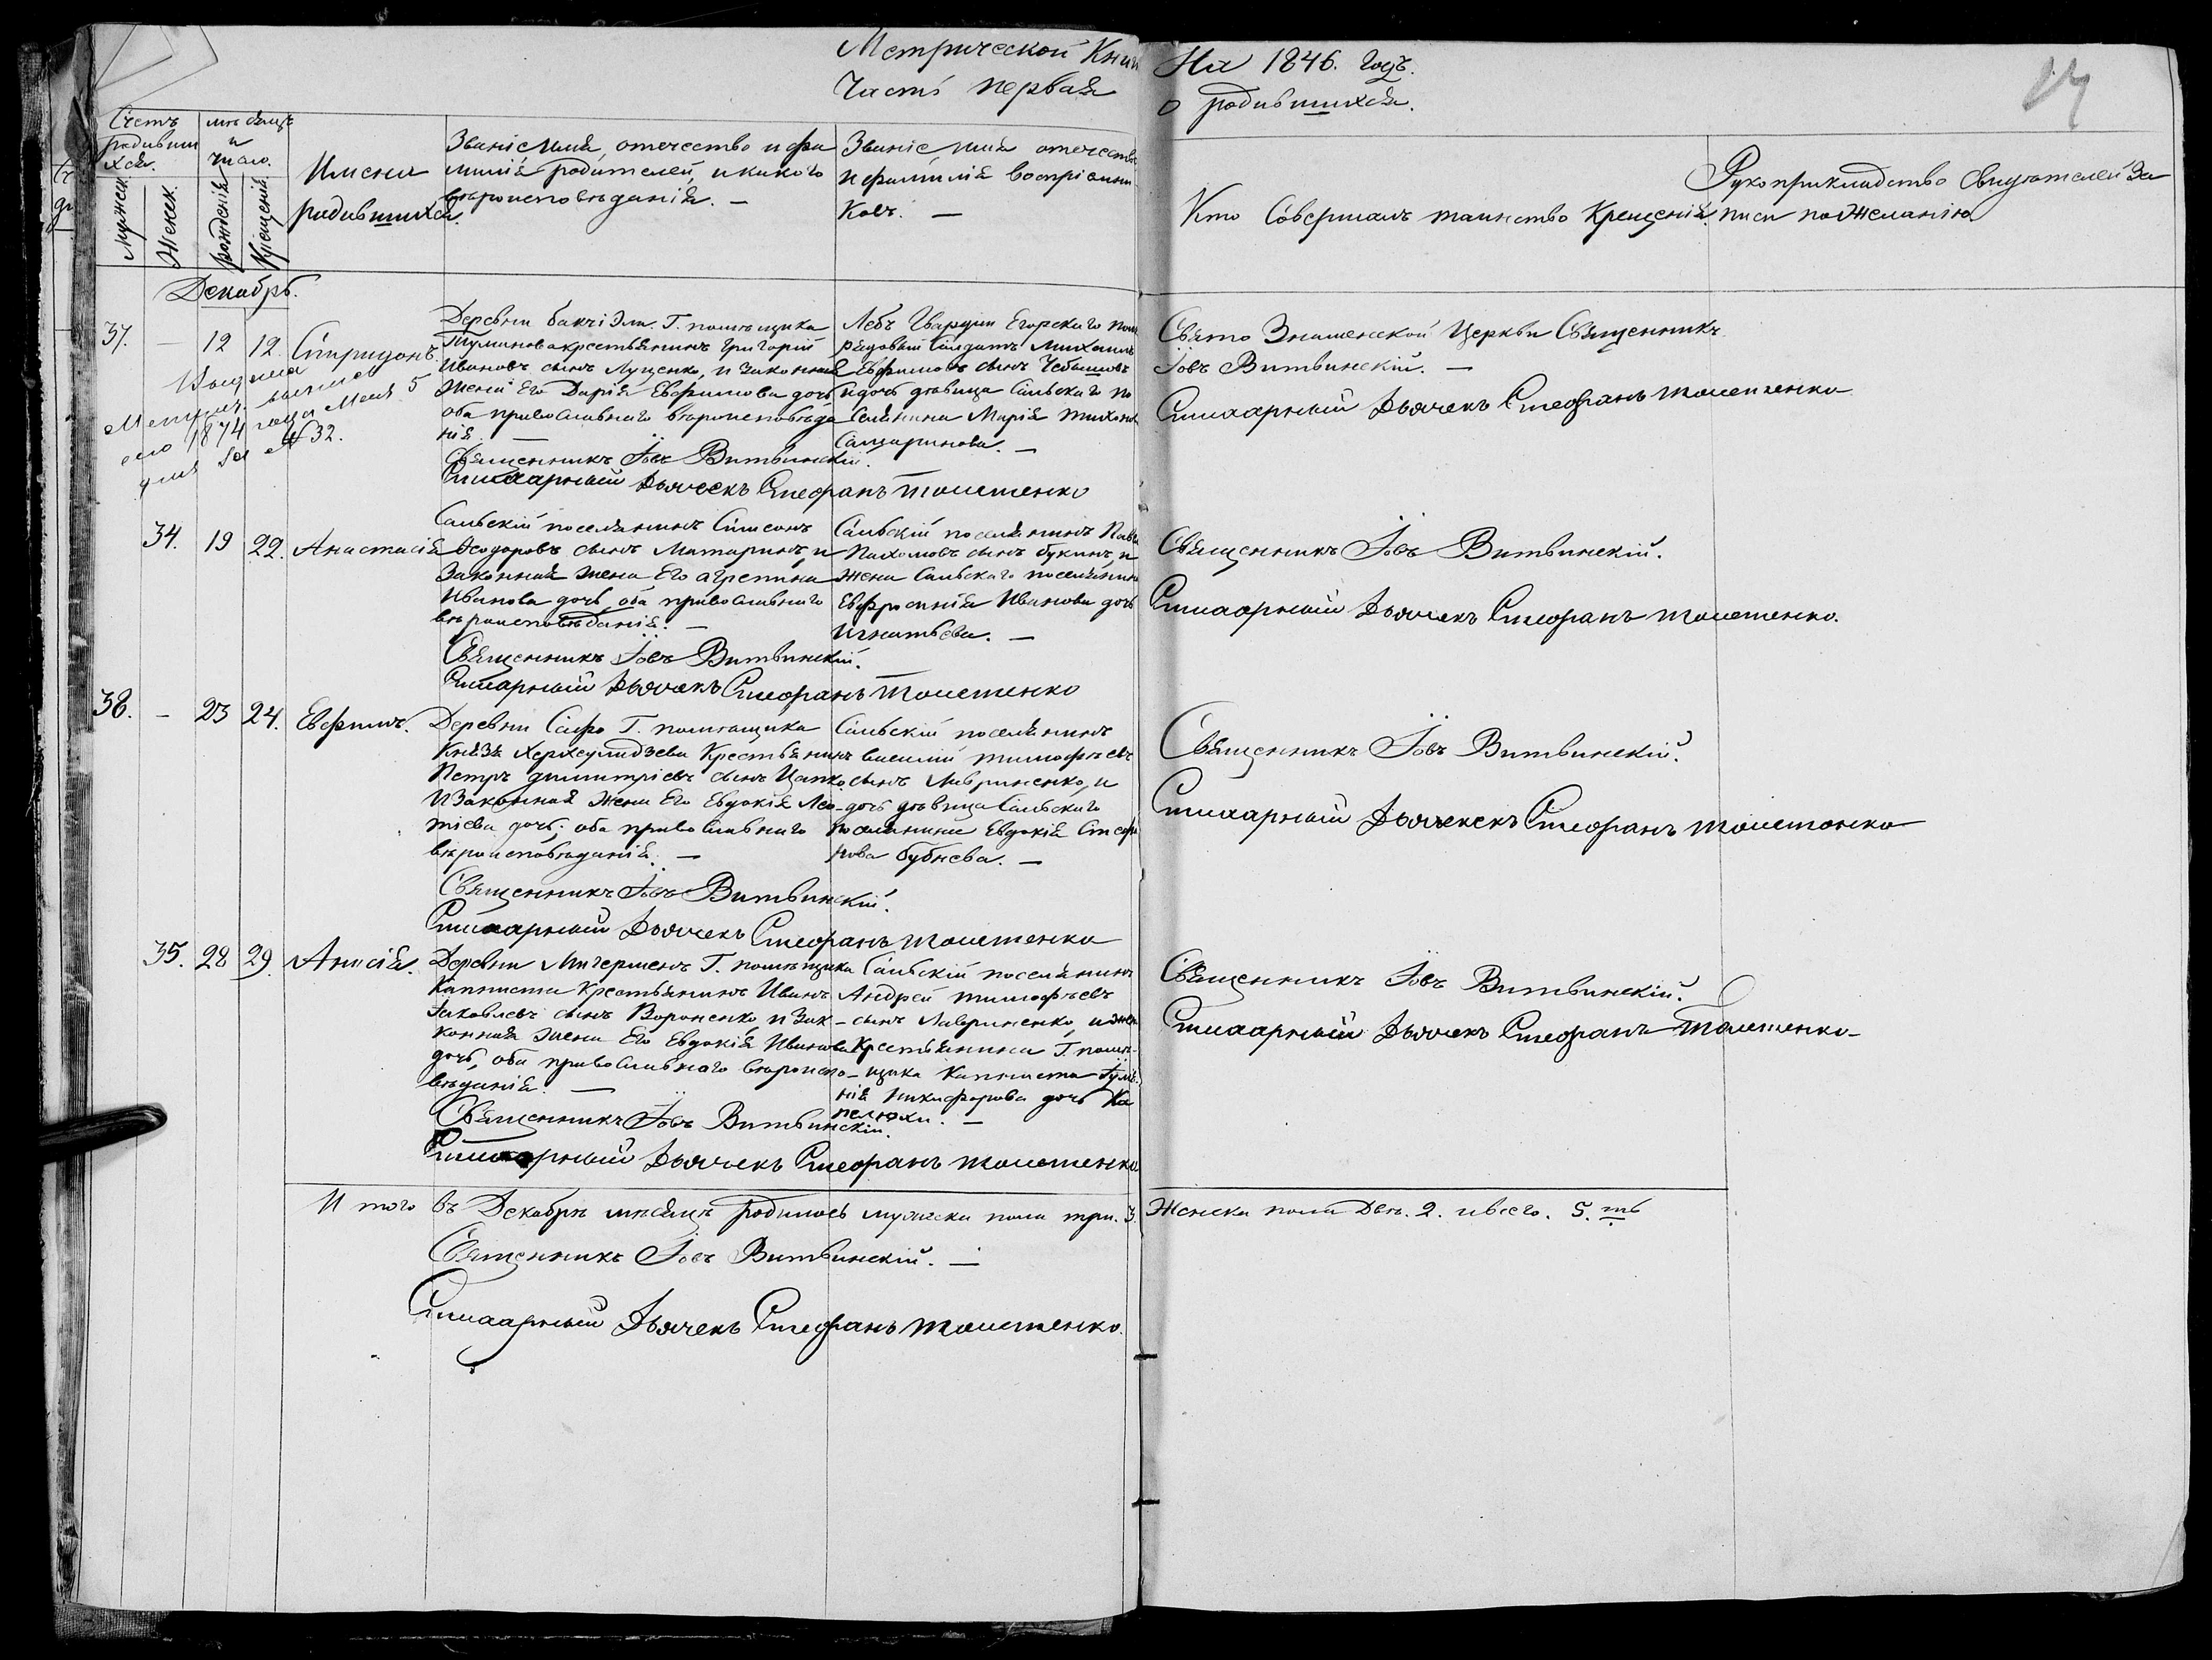 Метрической Кни
Часть первая
На 1846. годъ.
о родившихся.
Счетъ родивши хся.
мѣсяцъ и число.
Мужеск.
Женск.
рожденія
Крещенія
Имена родившихся.
Званіе имя, отечество и фа
милія родителей, и какого
вѣроисповѣданія. —
Званіе, имя отечество
и фамилія воспріемни
ковъ. —
Кто Совершалъ таинство Крещенія.
Рукоприкладство Свидѣтелей за
писи по Желанію
Декабрь.
37. — 12 12. Спиридонъ.
1874 года Мая 5
дня за № 32.
Деревни бакчі Эли. Г. помѣщика
Туманова крестьянинъ Григорій
Ивановъ сынъ Луценко, и законная
Жена Его Дарія Ефимова дочь
оба православнаго вѣроисповѣда
нія. —
Священникъ Іовъ Витвинскій.
Стихарный Дьячекъ Стефанъ
Лебъ Гвардіи Егорскаго пол
рядовый Солдатъ Михаилъ
Евфимовъ сынъ
дочь дѣвица Сальскаго по
Селянина Марія Тихоно
Свято Знаменской Церкви Священникъ
Іовъ Витвинскій. —
Стихарный Дьячекъ Стефанъ
34. 19 22. Анастасія
Сальскій поселянинъ Симеонъ
Ѳеодоровъ сынъ Матаринъ, и
Законная жена Его агрепина
Иванова дочь, оба православнаго
вѣроисповѣданія. —
Священникъ Іовъ Витвинскій.
Стихарный Дьячекъ Стефанъ
Сальскій поселянинъ
Пахомовъ сынъ букинъ, и
Жена Сальскаго поселянина
Евфросинія Иванова дочь
Игнатьева. —
Священникъ Іовъ Витвинскій.
Стихарный Дьячекъ Стефанъ
38. — 23 24. Евфимъ.
Деревни Сафо Г. помѣщика
Князя Херхеулидзева Крестьянинъ
Петръ Димитріевъ сынъ Цапко
И Законная Жена Его Евдокія Лео-
тіева дочь; оба православнаго
вѣроисповѣданія. —
Священникъ Іовъ Витвинскій.
Стихарный Дьячекъ Стефанъ
Сальскій поселянинъ
василій тимофѣевъ
сынъ Лавриненко, и
дочь дѣвица Сальскаго
поселянина Евдокія Стефа
нова бубнева. —
Священникъ Іовъ Витвинскій.
Стихарный Дьячекъ Стефанъ
35. 28 29. Анисія.
Деревни Мигерменъ Г. помѣщика
Капниста Крестьянинъ Иванъ
Яковлевъ сынъ Вороненко, и Зак-
конная Жена Его Евдокія Иванова
дочь, оба православнаго вѣроиспо-
вѣданія. —
Священникъ Іовъ Витвинскій.
Стихарный Дьячекъ Стефанъ
Сальскій поселянинъ
Андрей тимофѣевъ
сынъ Лавриненко, и жен
Крестьянина Г. помѣ-
щика Капниста
нія Никифорова дочь Ка
пелюхи. —
Священникъ Іовъ Витвинскій.
Стихарный Дьячекъ Стефанъ
И того въ Декабрѣ мѣсяцѣ родилось мужеска пола три. 3. Женска пола Двѣ. 2. и всего. 5.ть
Священникъ Іовъ Витвинскій. —
Стихарный Дьячекъ Стефанъ